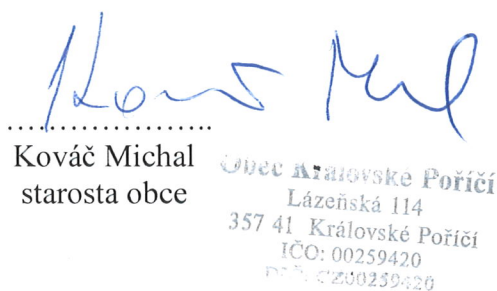 Kováč Michal
starosta obce
Obec Královské Poříčí
Lázeňská 114
357 41 Královské Poříčí
IČO: 00259420
DIČ: CZ00259420